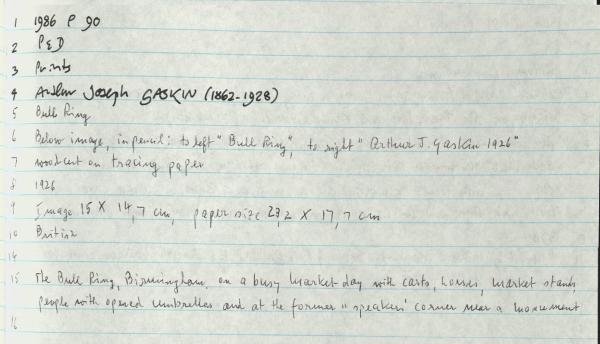 1 1986 P 90
2 P&D
3 Prints
4 Arthur Joseph GASKIN (1862-1928)
5 Bull Ring
6 Below image, in pencil: to left "Bull Ring", to right "Arthur J. Gaskin 1926"
7 woodcut on tracing paper
8 1926
9 Image 15 X 14,7 cm, paper size 23,2 X 17,7 cm
10 British
14
15 The Bull Ring, Birmingham, on a busy market-day with carts, horses, market stands,
people with opened umbrellas and at the former "speakers' corner near a monument
16